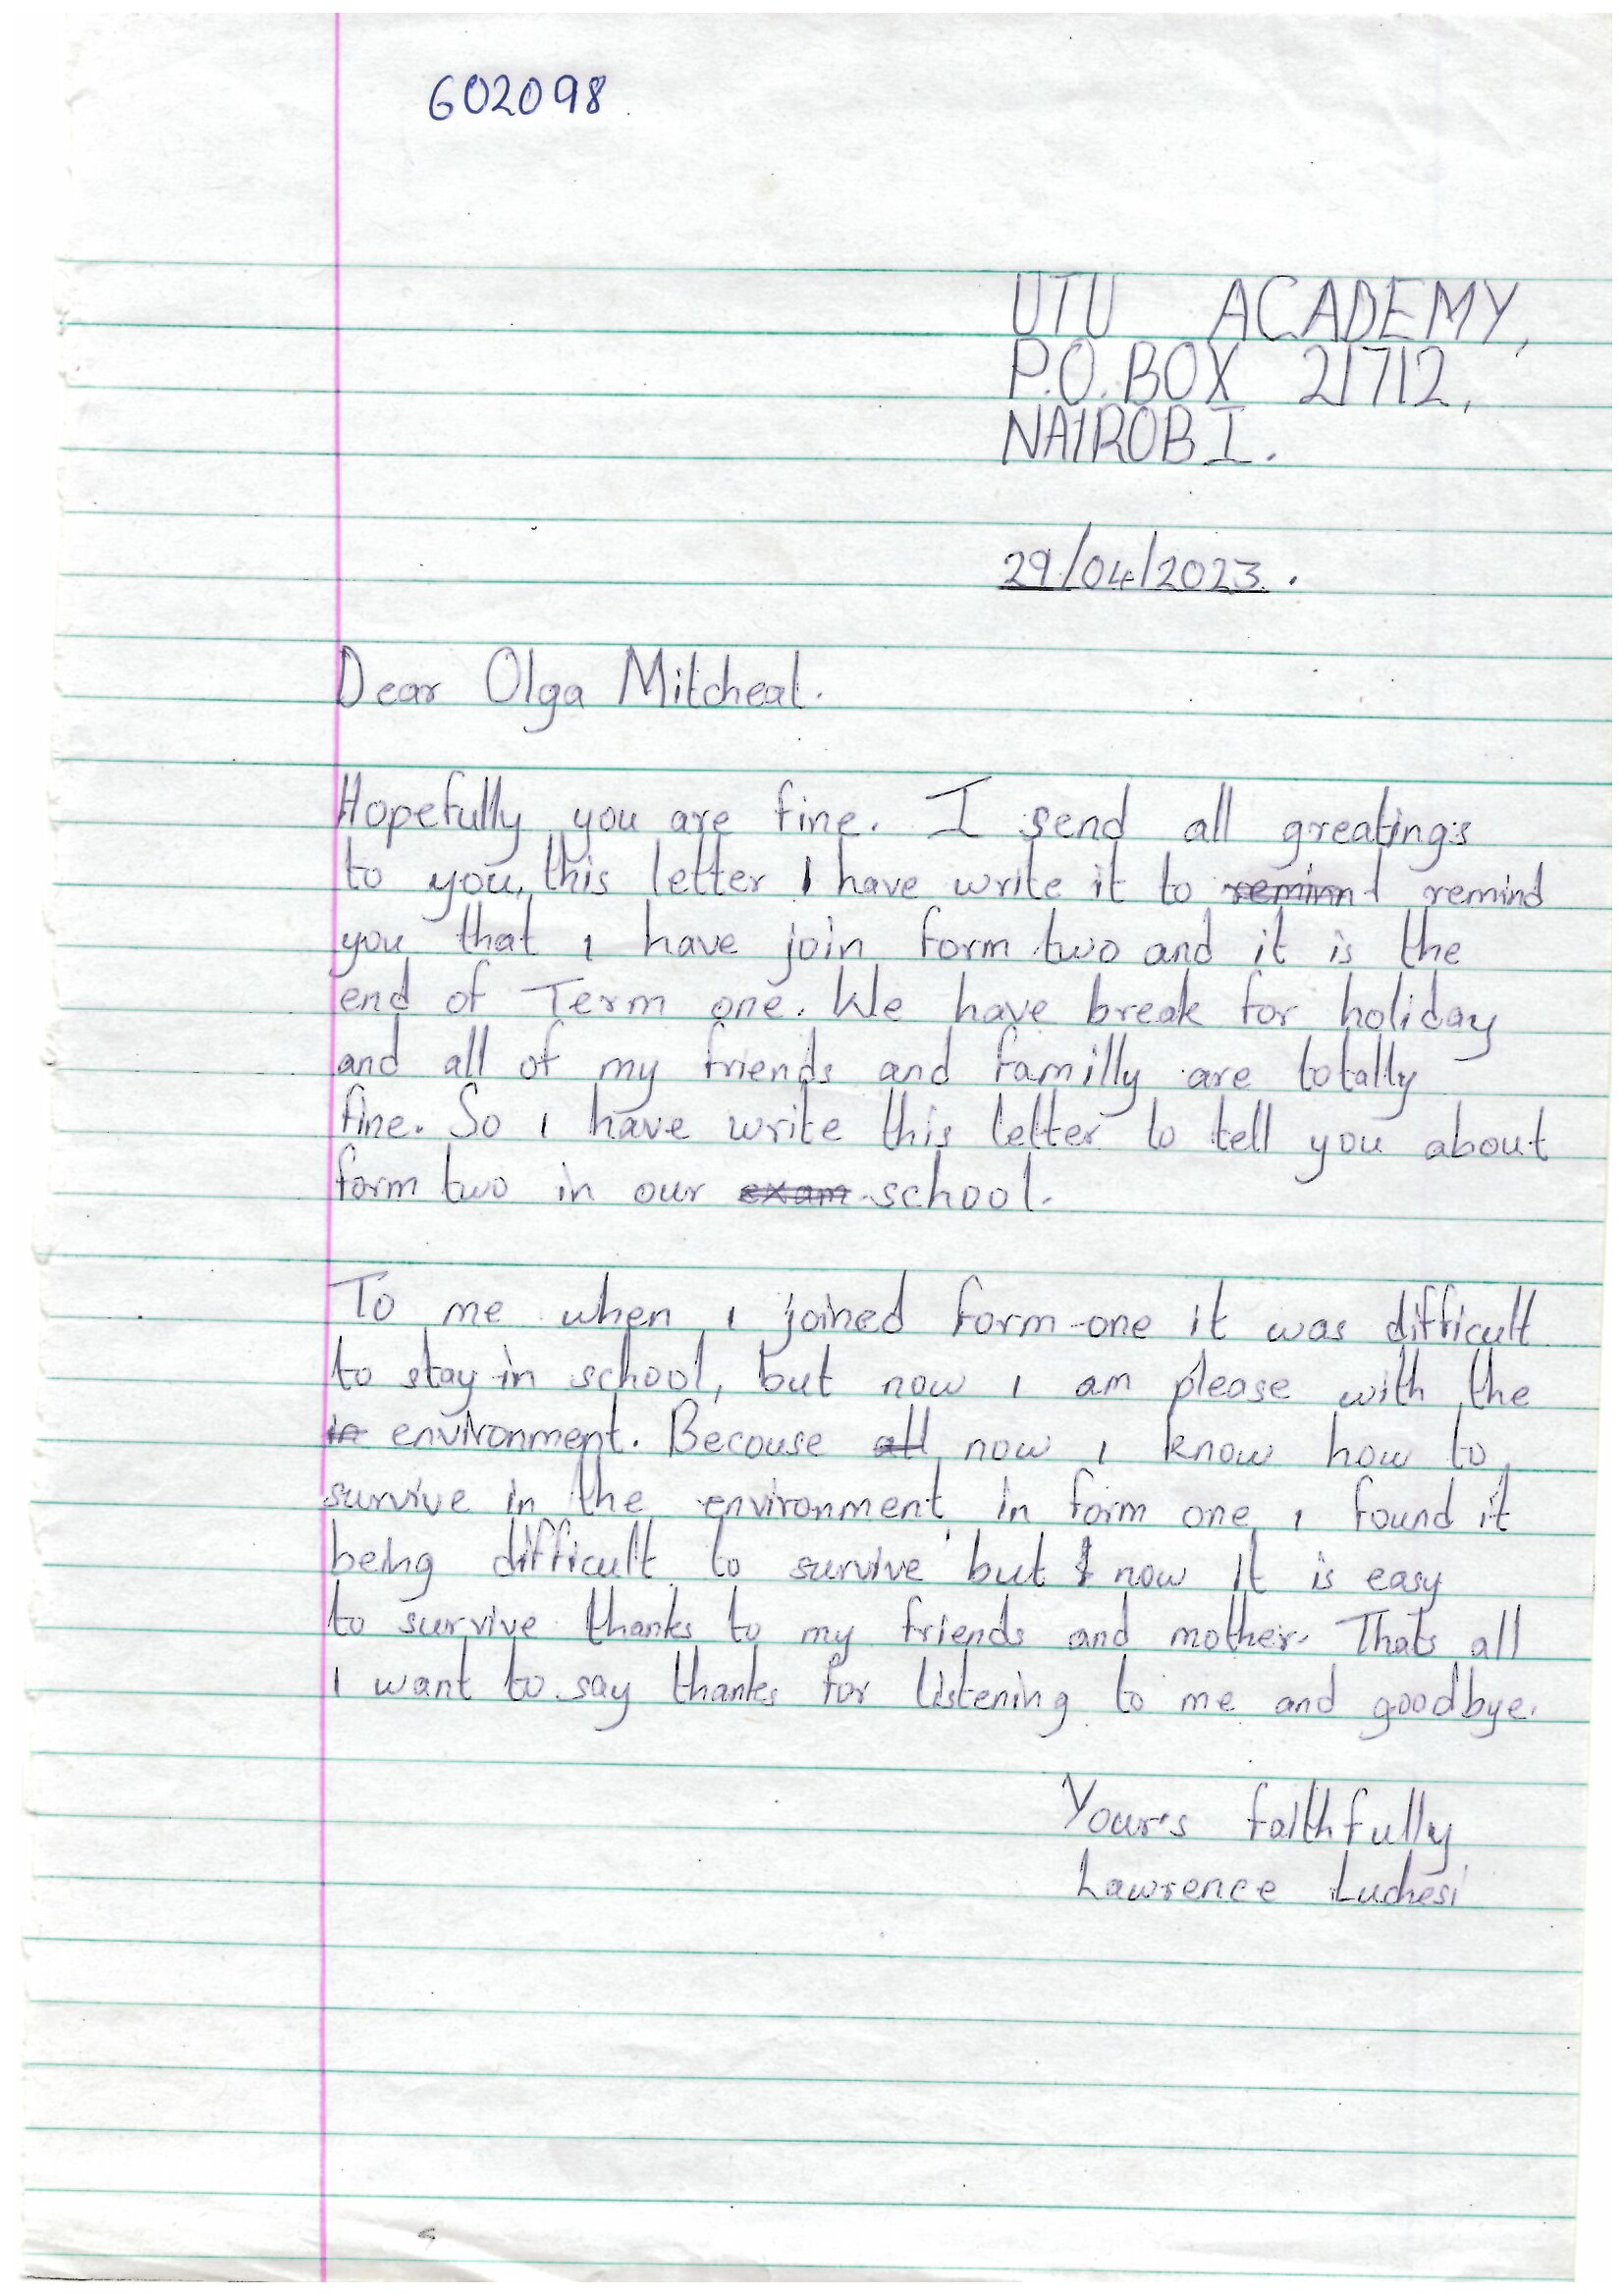 602098
UTU ACADEMY,
P.O.BOX 21712,
NAIROBI.
29/04/2023.
Dear Olga Mitcheal.
Hopefully you are fine. I send all greatings
to you, this letter I have write it to remind
you that I have join form two and it is the
end of Term one. We have break for holiday
and all of my friends and familly are totally
fine. So I have write this letter to tell you about
form two in our exam school.
To me when I joined form one it was difficult
to stay in school, but now I am please with the
in environment. Becouse all now I know how to
survive in the environment in form one I found it
being difficult to survive but I now it is easy
to survive thanks to my friends and mother. Thats all
I want to say thanks for listening to me and goodbye.
Your's faithfully
Lawrence Luchesi